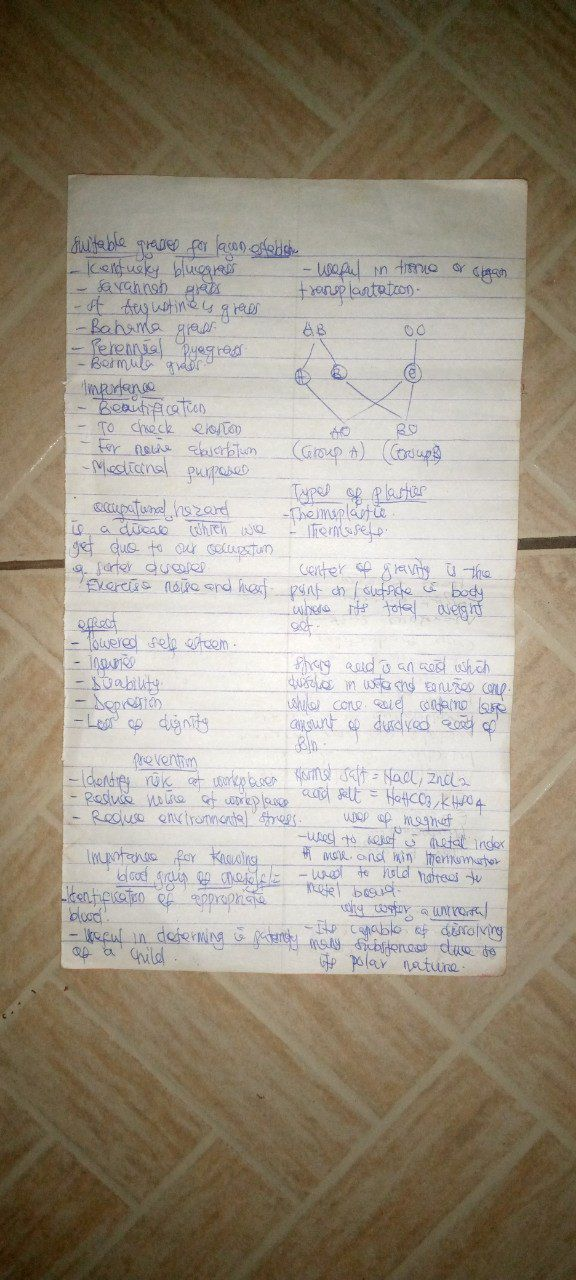 Suitable grasses for lawn
- Kentucky bluegrass
- Savannah grass
- St Augustine's grass
- Bahama grass
- Perennial ryegrass
- Bermuda grass
Importance
- Beautification
- To check erosion
- For noise absorption
- Medicinal purposes
occupational hazard
is a disease which we
get due to our occupation
diseases
Exercise noise and heat.
effect
- lowered self esteem.
- Injuries
- Disability
- Depression
- Loss of dignity
prevention
- Identify risk at workplaces
- Reduce noise at workplaces
- Reduce environmental stress.
Importance for knowing
blood group of
- Identification of appropriate
blood.
- Useful in determing
of a child.
- useful in tissue or organ
transplantation.
AB OO
A B O
AO BO
(Group A) (Group B)
Types of plastics
- Thermoplastic.
- thermosets.
Center of gravity is the
point on / outside a body
where its total weight
act.
Strong acid is an acid which
dissolve in water and ionizes comp.
while conc. acid contains large
amount of dissolved acid of
soln.
Normal salt = NaCl, ZnCl2
acid salt = NaHCO3, KHSO4
uses of magnet
- used to metal index
max and min thermometer
- used to hold notices to
metal board.
why water a universal
- Its capable of dissolving
many substances due to
its polar nature.